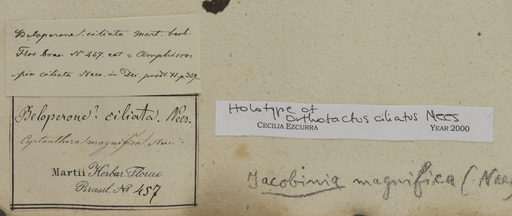 Beloperone? ciliata mart. herb.
Flor. Bras. No 457. est = Amphisco-
-pia ciliata Nees. in Dec. prodr. XI. p. 359.
Beloperone? ciliata. Nees.
Cyrtanthera magnifica Nees.
Martii Herbar. Florae
Brasil. No 457
Holotype of
Orthotactus ciliatus Nees
CECILIA EZCURRA YEAR 2000
Jacobinia magnifica (Nees